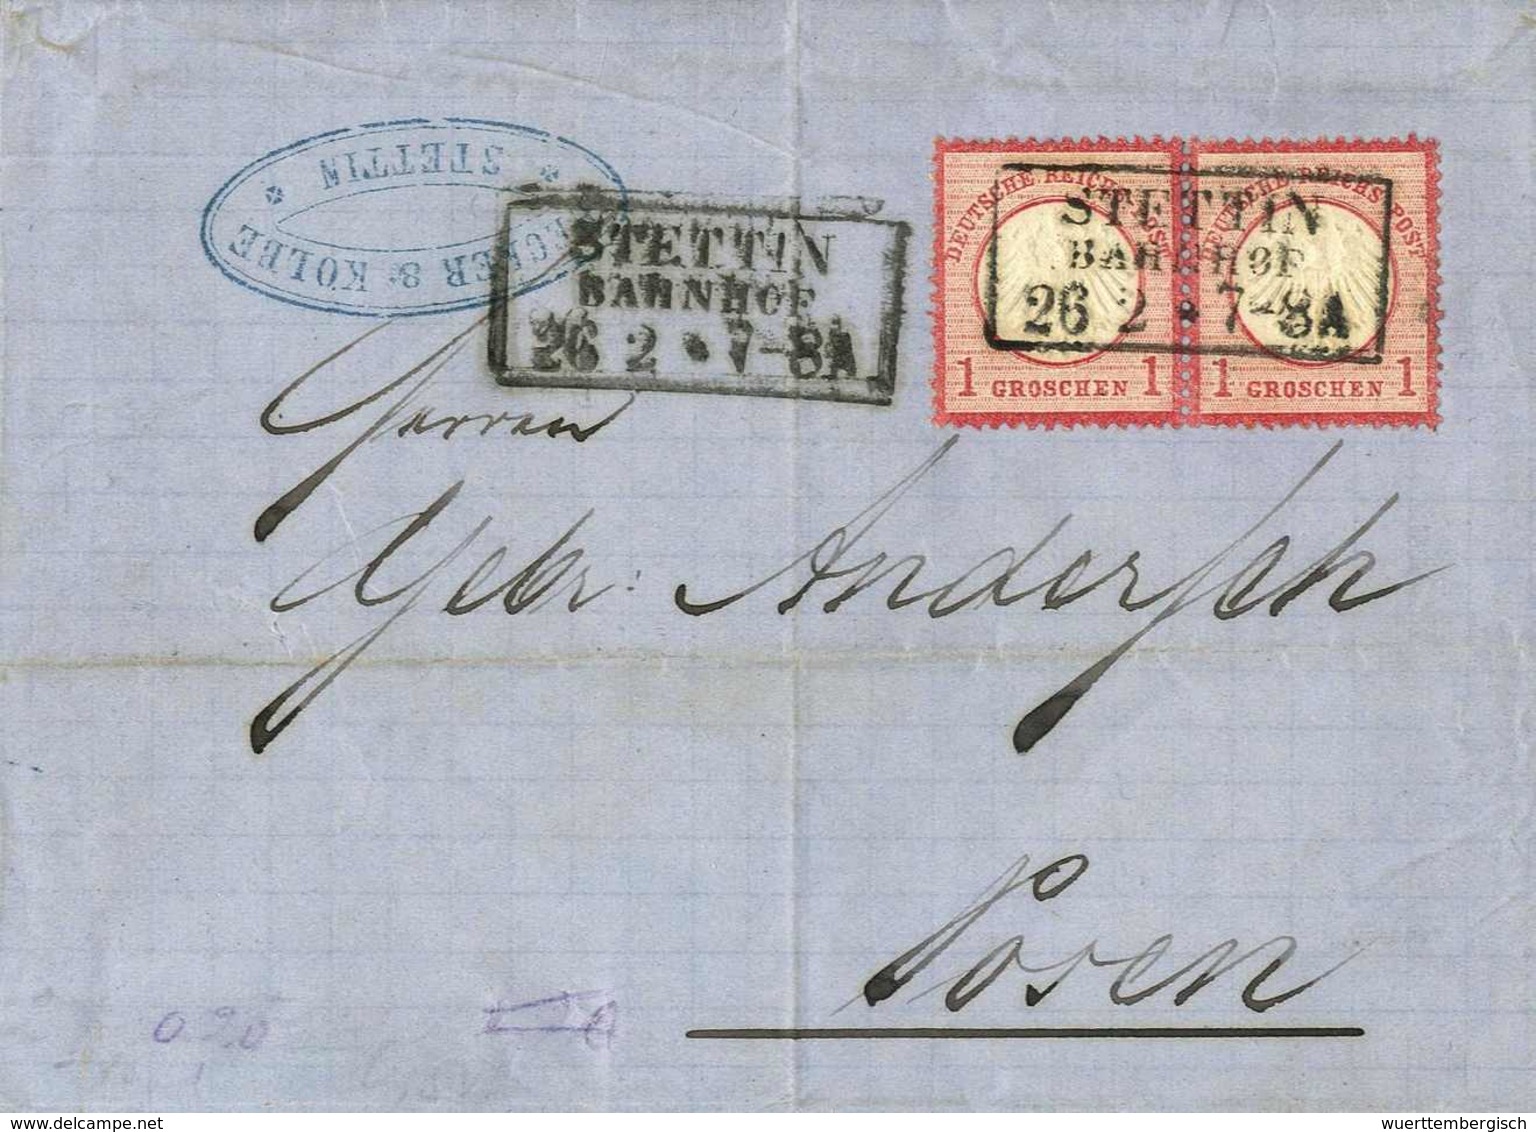 STETTIN
& KOLBE
STETTIN
BAHNHOF
26 2 • 7-8A
DEUTSCHE REICHS-POST
1 GROSCHEN 1
DEUTSCHE REICHS-POST
1 GROSCHEN 1
STETTIN
BAHNHOF
26 2 • 7-8A
Herren
Gebr: Andersch
Posen
delcampe.net
wuerttembergisch